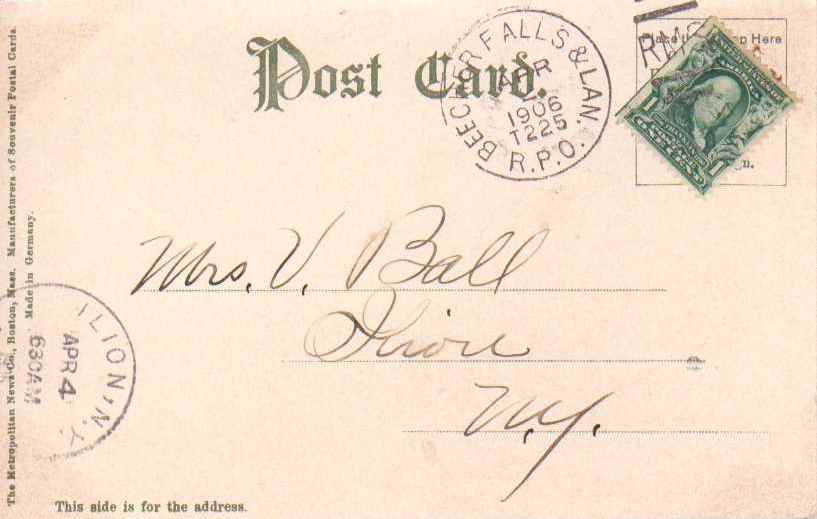 Post Card.
BEECHER FALLS & LAN.
1906
T225
R.P.O.
RMS
Place the Stamp Here
1 1
Mrs. V. Ball
Ilion
N.Y.
ILION, N.Y.
APR 4
630AM
The Metropolitan News Co., Boston, Mass. Manufacturers of Souvenir Postal Cards.
Made in Germany.
This side is for the address.